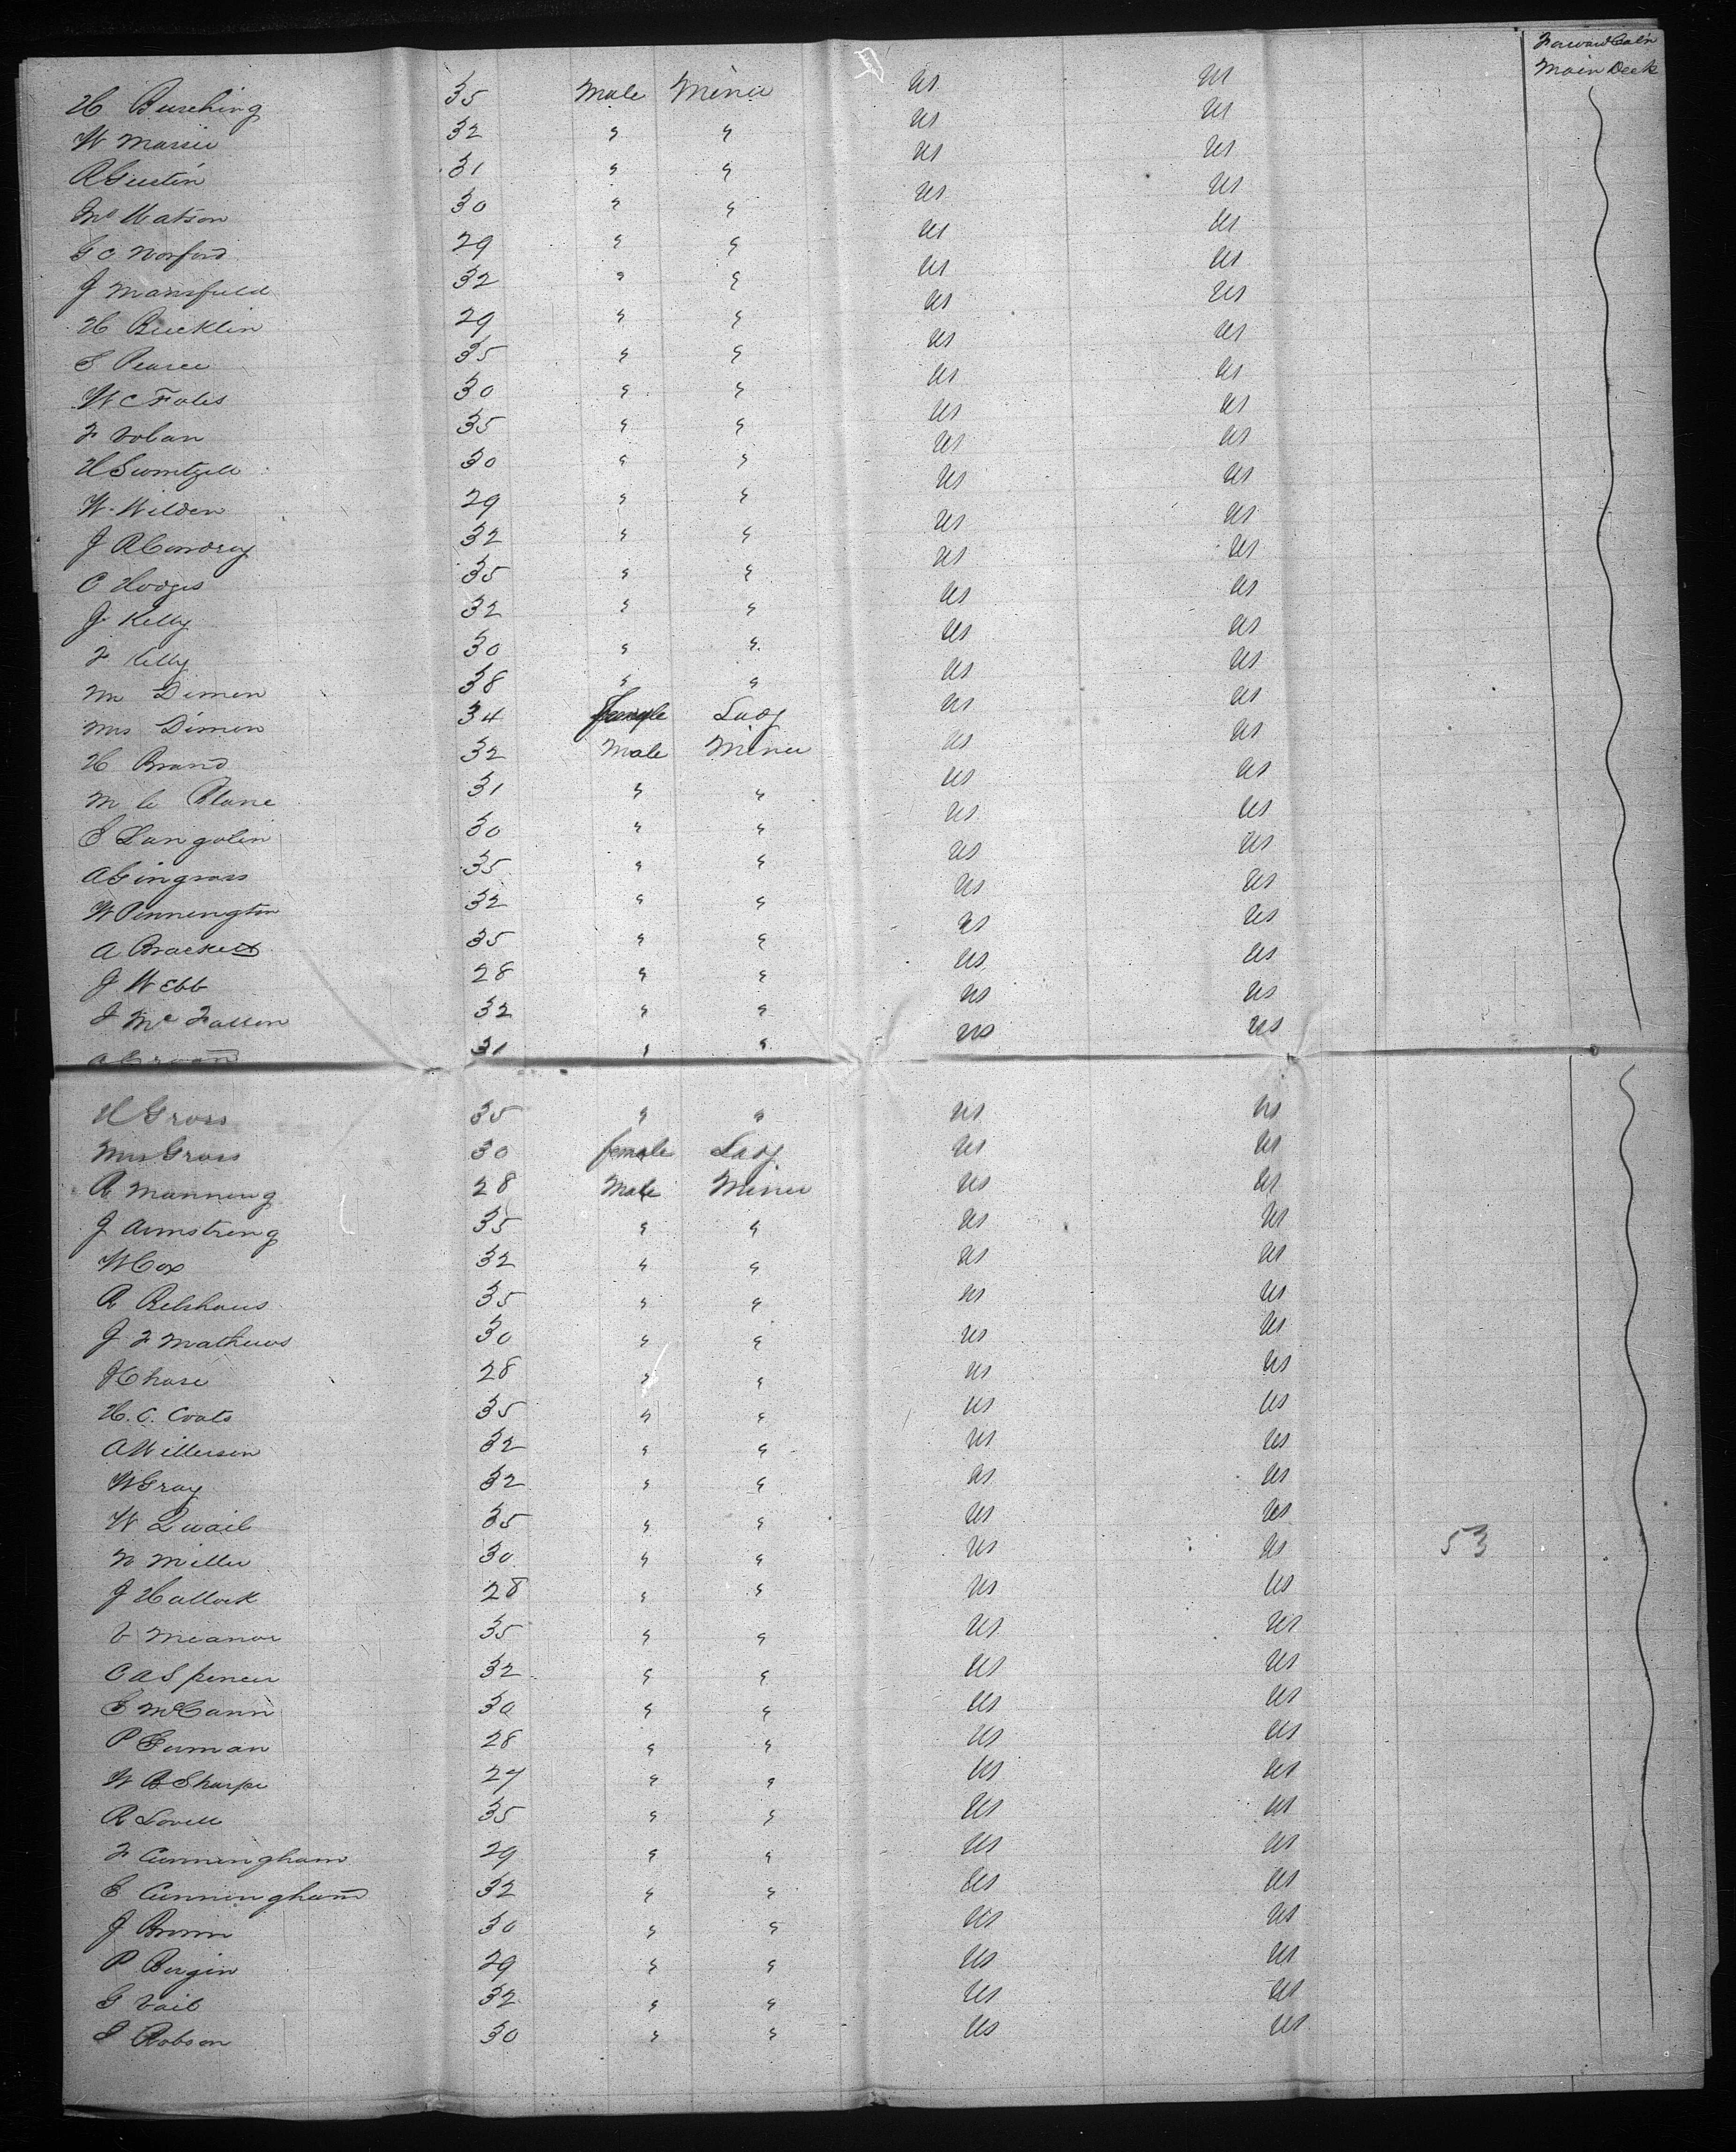 Forward Cab'n
Main Deck
H Bursching 35 Male Miner US US
W Marsie 32 " " US US
R Gustin 31 " " US US
Mc Watson 30 " " US US
G C Worford 29 " " US US
J Mansfield 32 " " US US
H Bucklin 29 " " US US
S Pearce 35 " " US US
W C Fales 30 " " US US
F Dolan 35 " " US US
H 30 " " US US
W. Wilden 29 " " US US
J R 32 " " US US
C Hodges 35 " " US US
J Kelly 32 " " US US
F Kelly 30 " " US US
Mr Dimon 38 " " US US
Mrs Dimon 34 female Lady US US
H Brand 32 Male Miner US US
M le Blanc 31 " " US US
E Langolin 30 " " US US
A Gingrass 35 " " US US
W Pennington 32 " " US US
A Brackett 35 " " US US
J Webb 28 " " US US
J Mc Fallon 32 " " US US
A 31 " " US US
H Gross 35 " " US US
Mrs Gross 30 female Lady US US
R Manning 28 Male Miner US US
J Armstrong 35 " " US US
W Cox 32 " " US US
R 35 " " US US
J F Mathews 30 " " US US
J Chase 28 " " US US
H. C. Coats 35 " " US US
A Willerson 32 " " US US
W Gray 32 " " US US
W Quail 35 " " US US
N Miller 30 " " US US 53
J Hallock 28 " " US US
V Meanor 35 " " US US
C A Spencer 32 " " US US
E McCann 30 " " US US
P 28 " " US US
W B Sharpe 27 " " US US
R Lovell 35 " " US US
F Cunningham 29 " " US US
E Cunningham 32 " " US US
J Brown 30 " " US US
P Bergin 29 " " US US
G Vail 32 " " US US
J Robson 30 " " US US